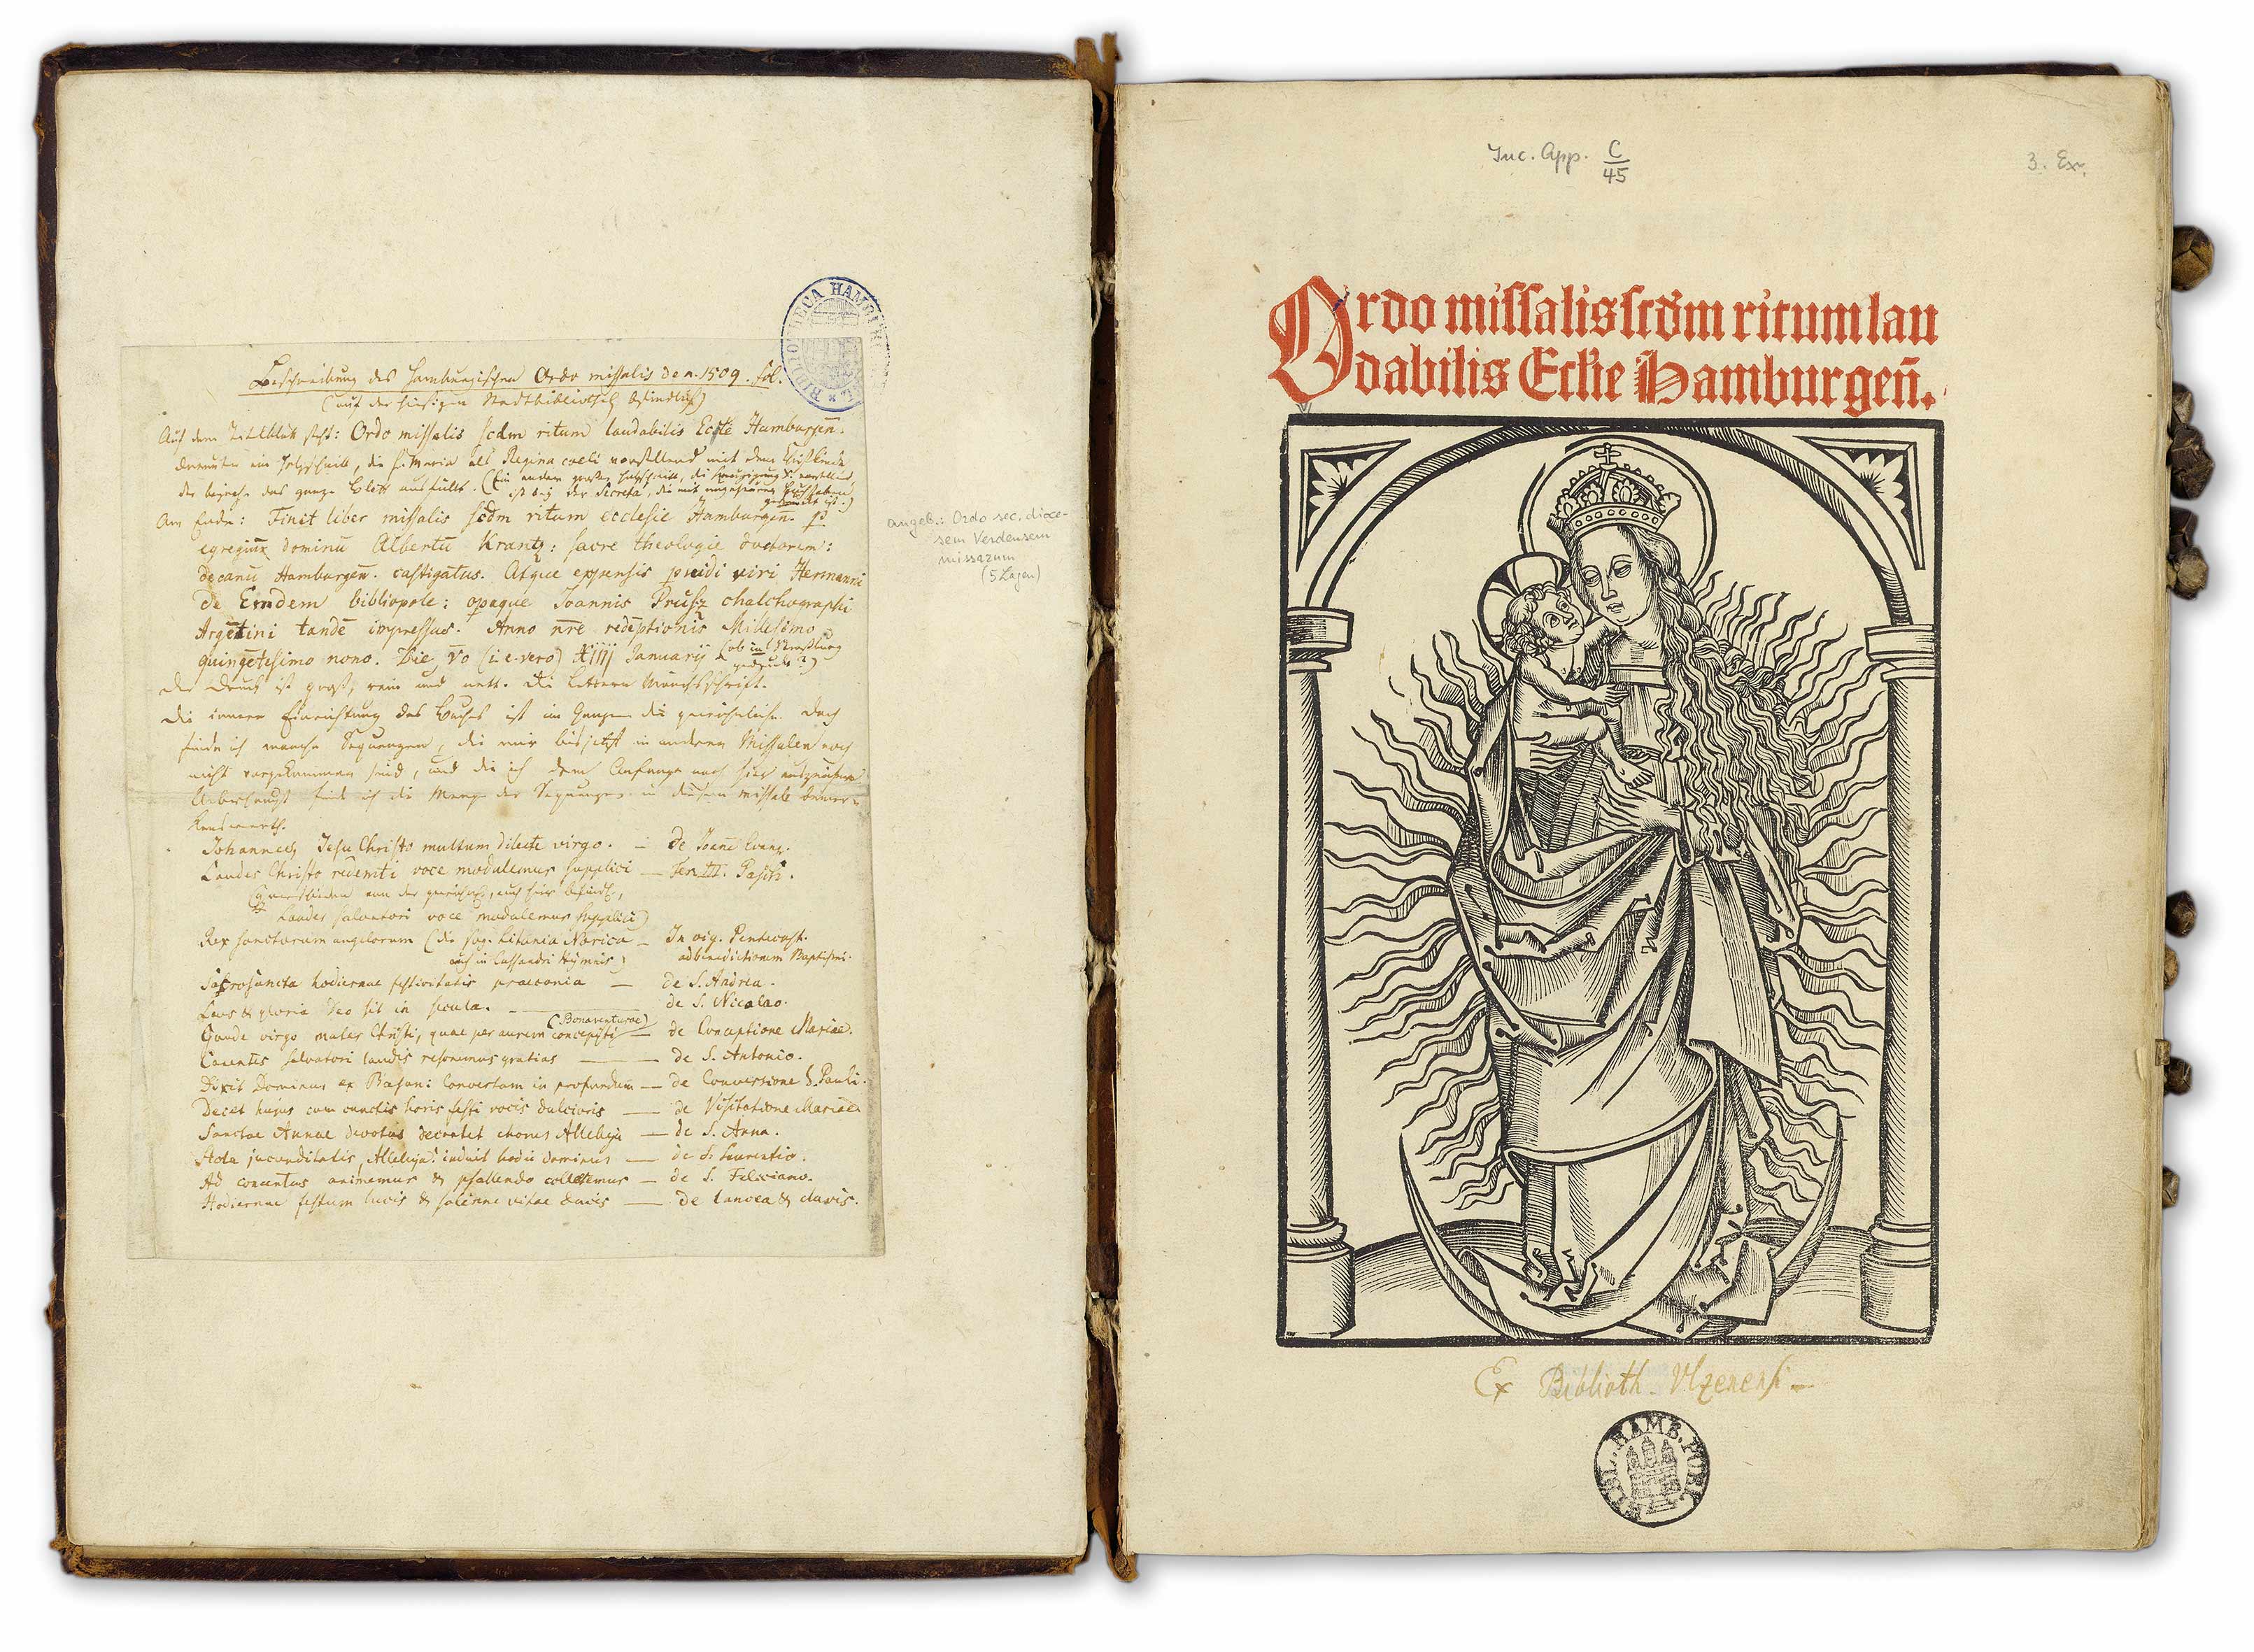 BIBLIOTHECA HAMBURG
Beschreibung des Hamburgischen Ordo missalis de a. 1509. fol.
(auf der hiesigen Stadtbibliothek befindlich)
Auf dem Titelblatt steht: Ordo missalis scdm ritum laudabilis Eccl̄e Hamburgen̄.
darunter ein Holzschnitt, die h. Maria als Regina coeli vorstellend mit dem Christkinde
der beynahe das ganze Blatt ausfüllt. (Ein andrer großer Holzschnitt, die Kreuzigung vorstellend,
ist bey der Secreta, die mit ungeheuren Buchstaben
gedruckt ist.)
Am Ende: Finit liber missalis scdm ritum ecclesie Hamburgen̄. p
egregiuz dominū Albertū Krantz: sacre theologie doctorem:
decanū Hamburgen̄. castigatus. Atque expensis pvidi viri Hermanni
de Emdem bibliopole: opaque Joannis Prusz chalchographi
Argētini tandē impressus. Anno nr̄e redēptionis Millesimo
quingētesimo nono. Die, vo (i.e. vero) Xiiij Januarij (ob in Straßburg
gedruckt?)
Der Druck ist groß, rein und nett. Die Lettern Mönchsschrift.
Die innere Einrichtung des Buches ist im Ganzen die gewöhnliche. Doch
finde ich manche Sequenzen, die mir bis jetzt in anderen Missalen noch
nicht vorgekommen sind, und die ich dem Anfange nach hier auszeichne
Ueberhaupt finde ich die Menge der Sequenzen in diesem missale bemer-
kenswerth.
Johannes Jesu Christo multum dilecte virgo. — de Joane Evang.
Laudes Christo redemti voce modulemur supplici — Fer. III. Pasch.
(verschieden von der gewöhnl., auch hier befindl.,
Laudes salvatori voce modulemur supplici)
Rex sanctorum angelorum (die sog. Litania Norica — In vig. Pentecost.
auch in Cassandri Hymnis) ad benedictionem Baptismi.
Sacrosancta hodiernae festivitatis praeconia — de S. Andrea.
Laus & gloria Deo sit in secula. — de S. Nicolao.
(Bonaventurae)
Gaude virgo mater Christi, quae per aurem concepisti — de Conceptione Mariae.
Canentes salvatori laudis resonemus gratias — de S. Antonio.
Dixit Dominus ex Basan: Convertam in profundum — de Conversione S. Pauli.
Decet hujus cum cunctis horis festi vocis dulcioris — de Visitatione Mariae
Sanctae Annae devotus decantet chorus Alleluja — de S. Anna.
Stola jucunditatis, Alleluja! induit hodie dominus — de S. Laurentio.
Ad concentus animemur & psallendo colletemur — de S. Feliciano.
Hodiernae festum lucis & solenne vitae ducis — de lancea & clavis.
angeb.: Ordo sec. dioce-
sem Verdensem
missarum
(5 Lagen)
Inc. App. C
45
3. Ex.
Ordo missalis scd̄m ritum lau
dabilis Eccl̄ie Hamburgen̄.
Ex Biblioth. Vlzenensi
BIBL. HAMB. PUBLICA